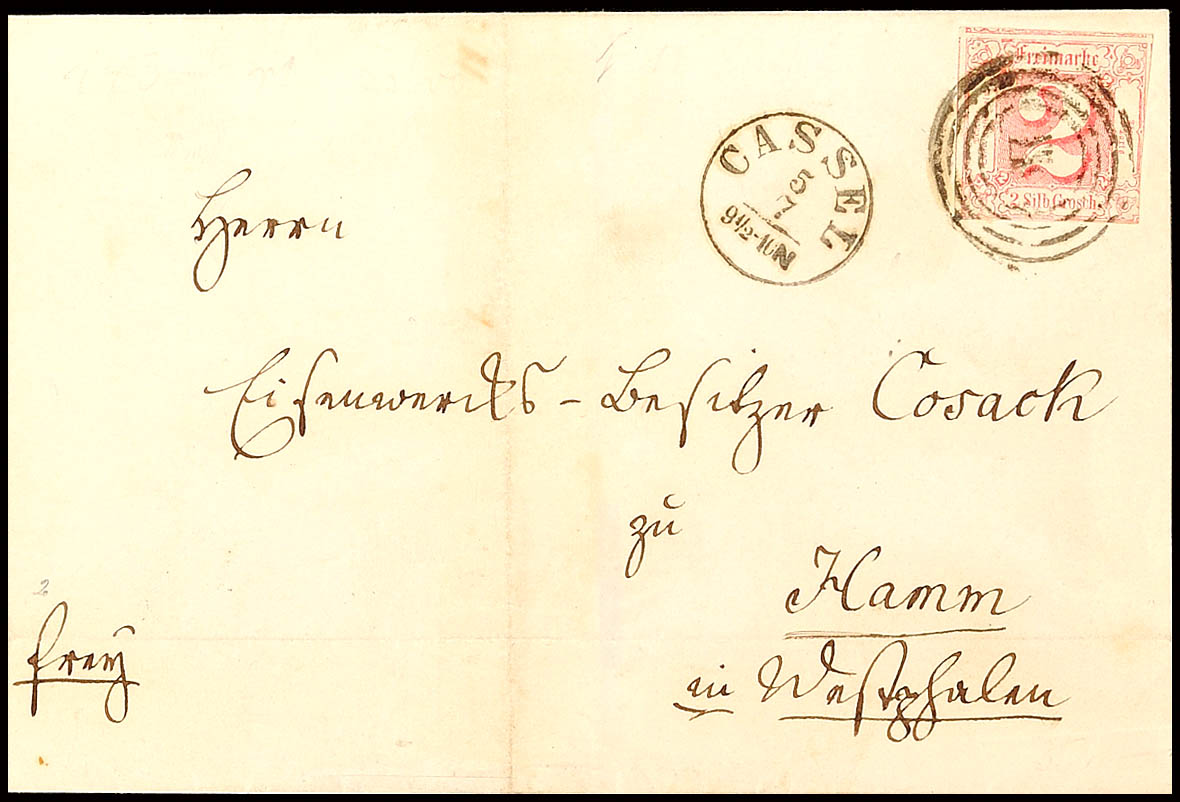 Freimarke
2 Silb Grosch.
CASSEL
5
7
9 1/2-10 N
Herrn
Eisenwercks-Besitzer Cosack
zu
Hamm
in Westphalen
2
frey